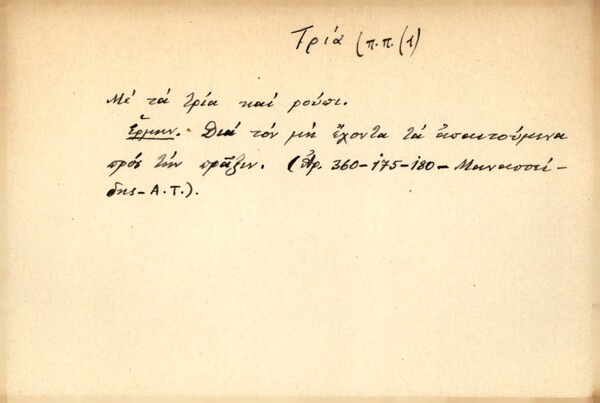 Τρία (π.π. (1)
Μέ τά τρία καί ρούπι.
Ἑρμην. Διά τόν μή ἔχοντα τά ἀπαιτούμενα
πρός τήν πρᾶξιν. (Ἀρ. 360-175-180-Μανασσεί-
δης-Α.Τ.).